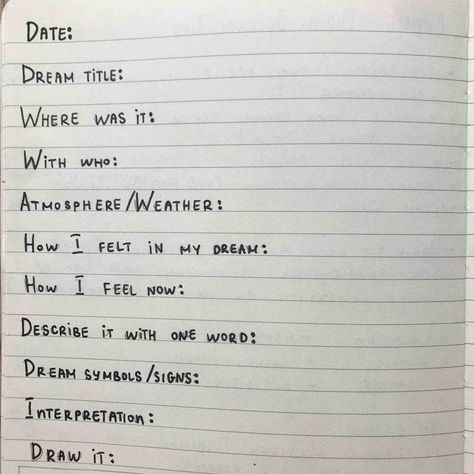 Date:
Dream title:
Where was it:
With who:
Atmosphere/Weather:
How I felt in my dream:
How I feel now:
Describe it with one word:
Dream symbols/signs:
Interpretation:
Draw it: